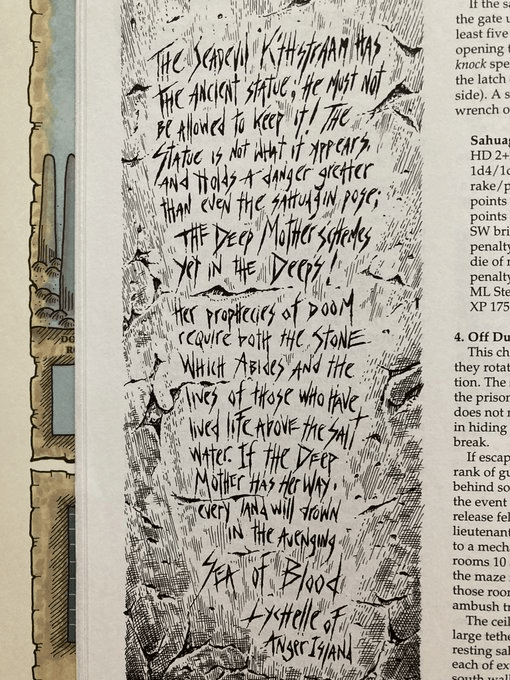 The Seadevil Kthstraam has
the ancient statue! He must not
be allowed to keep it! The
statue is not what it appears,
and holds a danger greater
than even the sahuagin pose;
the Deep Mother schemes
yet in the Deeps!
Her prophecies of DOOM
require both the STONE
which Abides and the
lives of those who have
lived life above the salt
water. If the Deep
Mother has her way,
every land will drown
in the avenging
Sea of Blood
Lychelle of
Anger Island
If the sa
the gate u
least five
opening t
knock spe
the latch
side). A s
wrench o
Sahuag
HD 2+
1d4/1d
rake/p
points
points
SW bri
penalty
die of r
penalty
ML Ste
XP 175
4. Off Du
This ch
they rotat
tion. The
the prison
does not r
in hiding
break.
If escap
rank of gu
behind so
the event
release fel
lieutenant
to a mecha
rooms 10
the maze
those roor
ambush tr
The ceil
large tethe
resting sal
each of ex
south wall